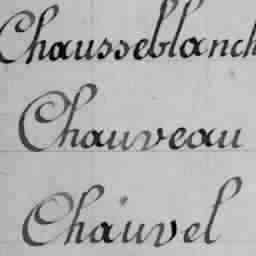 Chausseblanch
Chauveau
Chauvel